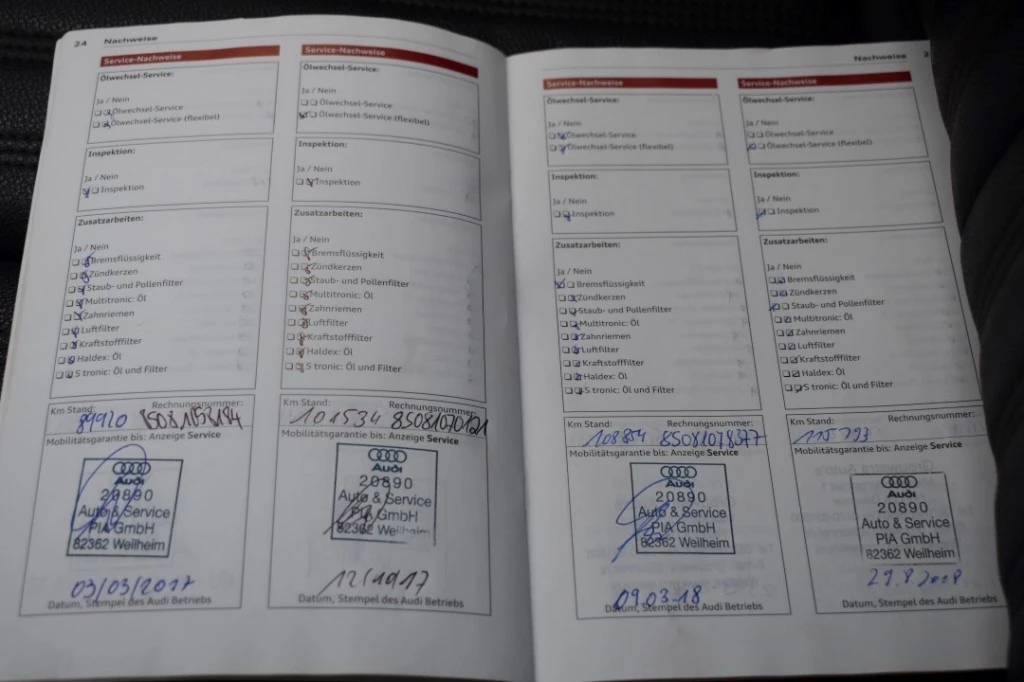 24 Nachweise
Service-Nachweise
Ölwechsel-Service:
Ja / Nein
Ölwechsel-Service
Ölwechsel-Service (flexibel)
Inspektion:
Ja / Nein
Inspektion
Zusatzarbeiten:
Ja / Nein
Bremsflüssigkeit
Zündkerzen
Staub- und Pollenfilter
Multitronic: Öl
Zahnriemen
Luftfilter
Kraftstofffilter
Haldex: Öl
S tronic: Öl und Filter
Km Stand: Rechnungsnummer:
89920
Mobilitätsgarantie bis: Anzeige Service
Audi
20890
Auto & Service
PIA GmbH
82362 Weilheim
03/03/2017
Datum, Stempel des Audi Betriebs
Service-Nachweise
Ölwechsel-Service:
Ja / Nein
Ölwechsel-Service
Ölwechsel-Service (flexibel)
Inspektion:
Ja / Nein
Inspektion
Zusatzarbeiten:
Ja / Nein
Bremsflüssigkeit
Zündkerzen
Staub- und Pollenfilter
Multitronic: Öl
Zahnriemen
Luftfilter
Kraftstofffilter
Haldex: Öl
S tronic: Öl und Filter
Km Stand: Rechnungsnummer:
101534
Mobilitätsgarantie bis: Anzeige Service
Audi
20890
Auto & Service
PIA GmbH
82362 Weilheim
12/10/17
Datum, Stempel des Audi Betriebs
Nachweise 2
Service-Nachweise
Ölwechsel-Service:
Ja / Nein
Ölwechsel-Service
Ölwechsel-Service (flexibel)
Inspektion:
Ja / Nein
Inspektion
Zusatzarbeiten:
Ja / Nein
Bremsflüssigkeit
Zündkerzen
Staub- und Pollenfilter
Multitronic: Öl
Zahnriemen
Luftfilter
Kraftstofffilter
Haldex: Öl
S tronic: Öl und Filter
Km Stand: Rechnungsnummer:
108854 85081078377
Mobilitätsgarantie bis: Anzeige Service
Audi
20890
Auto & Service
PIA GmbH
82362 Weilheim
09.03.18
Datum, Stempel des Audi Betriebs
Service-Nachweise
Ölwechsel-Service:
Ja / Nein
Ölwechsel-Service
Ölwechsel-Service (flexibel)
Inspektion:
Ja / Nein
Inspektion
Zusatzarbeiten:
Ja / Nein
Bremsflüssigkeit
Zündkerzen
Staub- und Pollenfilter
Multitronic: Öl
Zahnriemen
Luftfilter
Kraftstofffilter
Haldex: Öl
S tronic: Öl und Filter
Km Stand: Rechnungsnummer:
115793
Mobilitätsgarantie bis: Anzeige Service
Audi
20890
Auto & Service
PIA GmbH
82362 Weilheim
29.8.2018
Datum, Stempel des Audi Betriebs